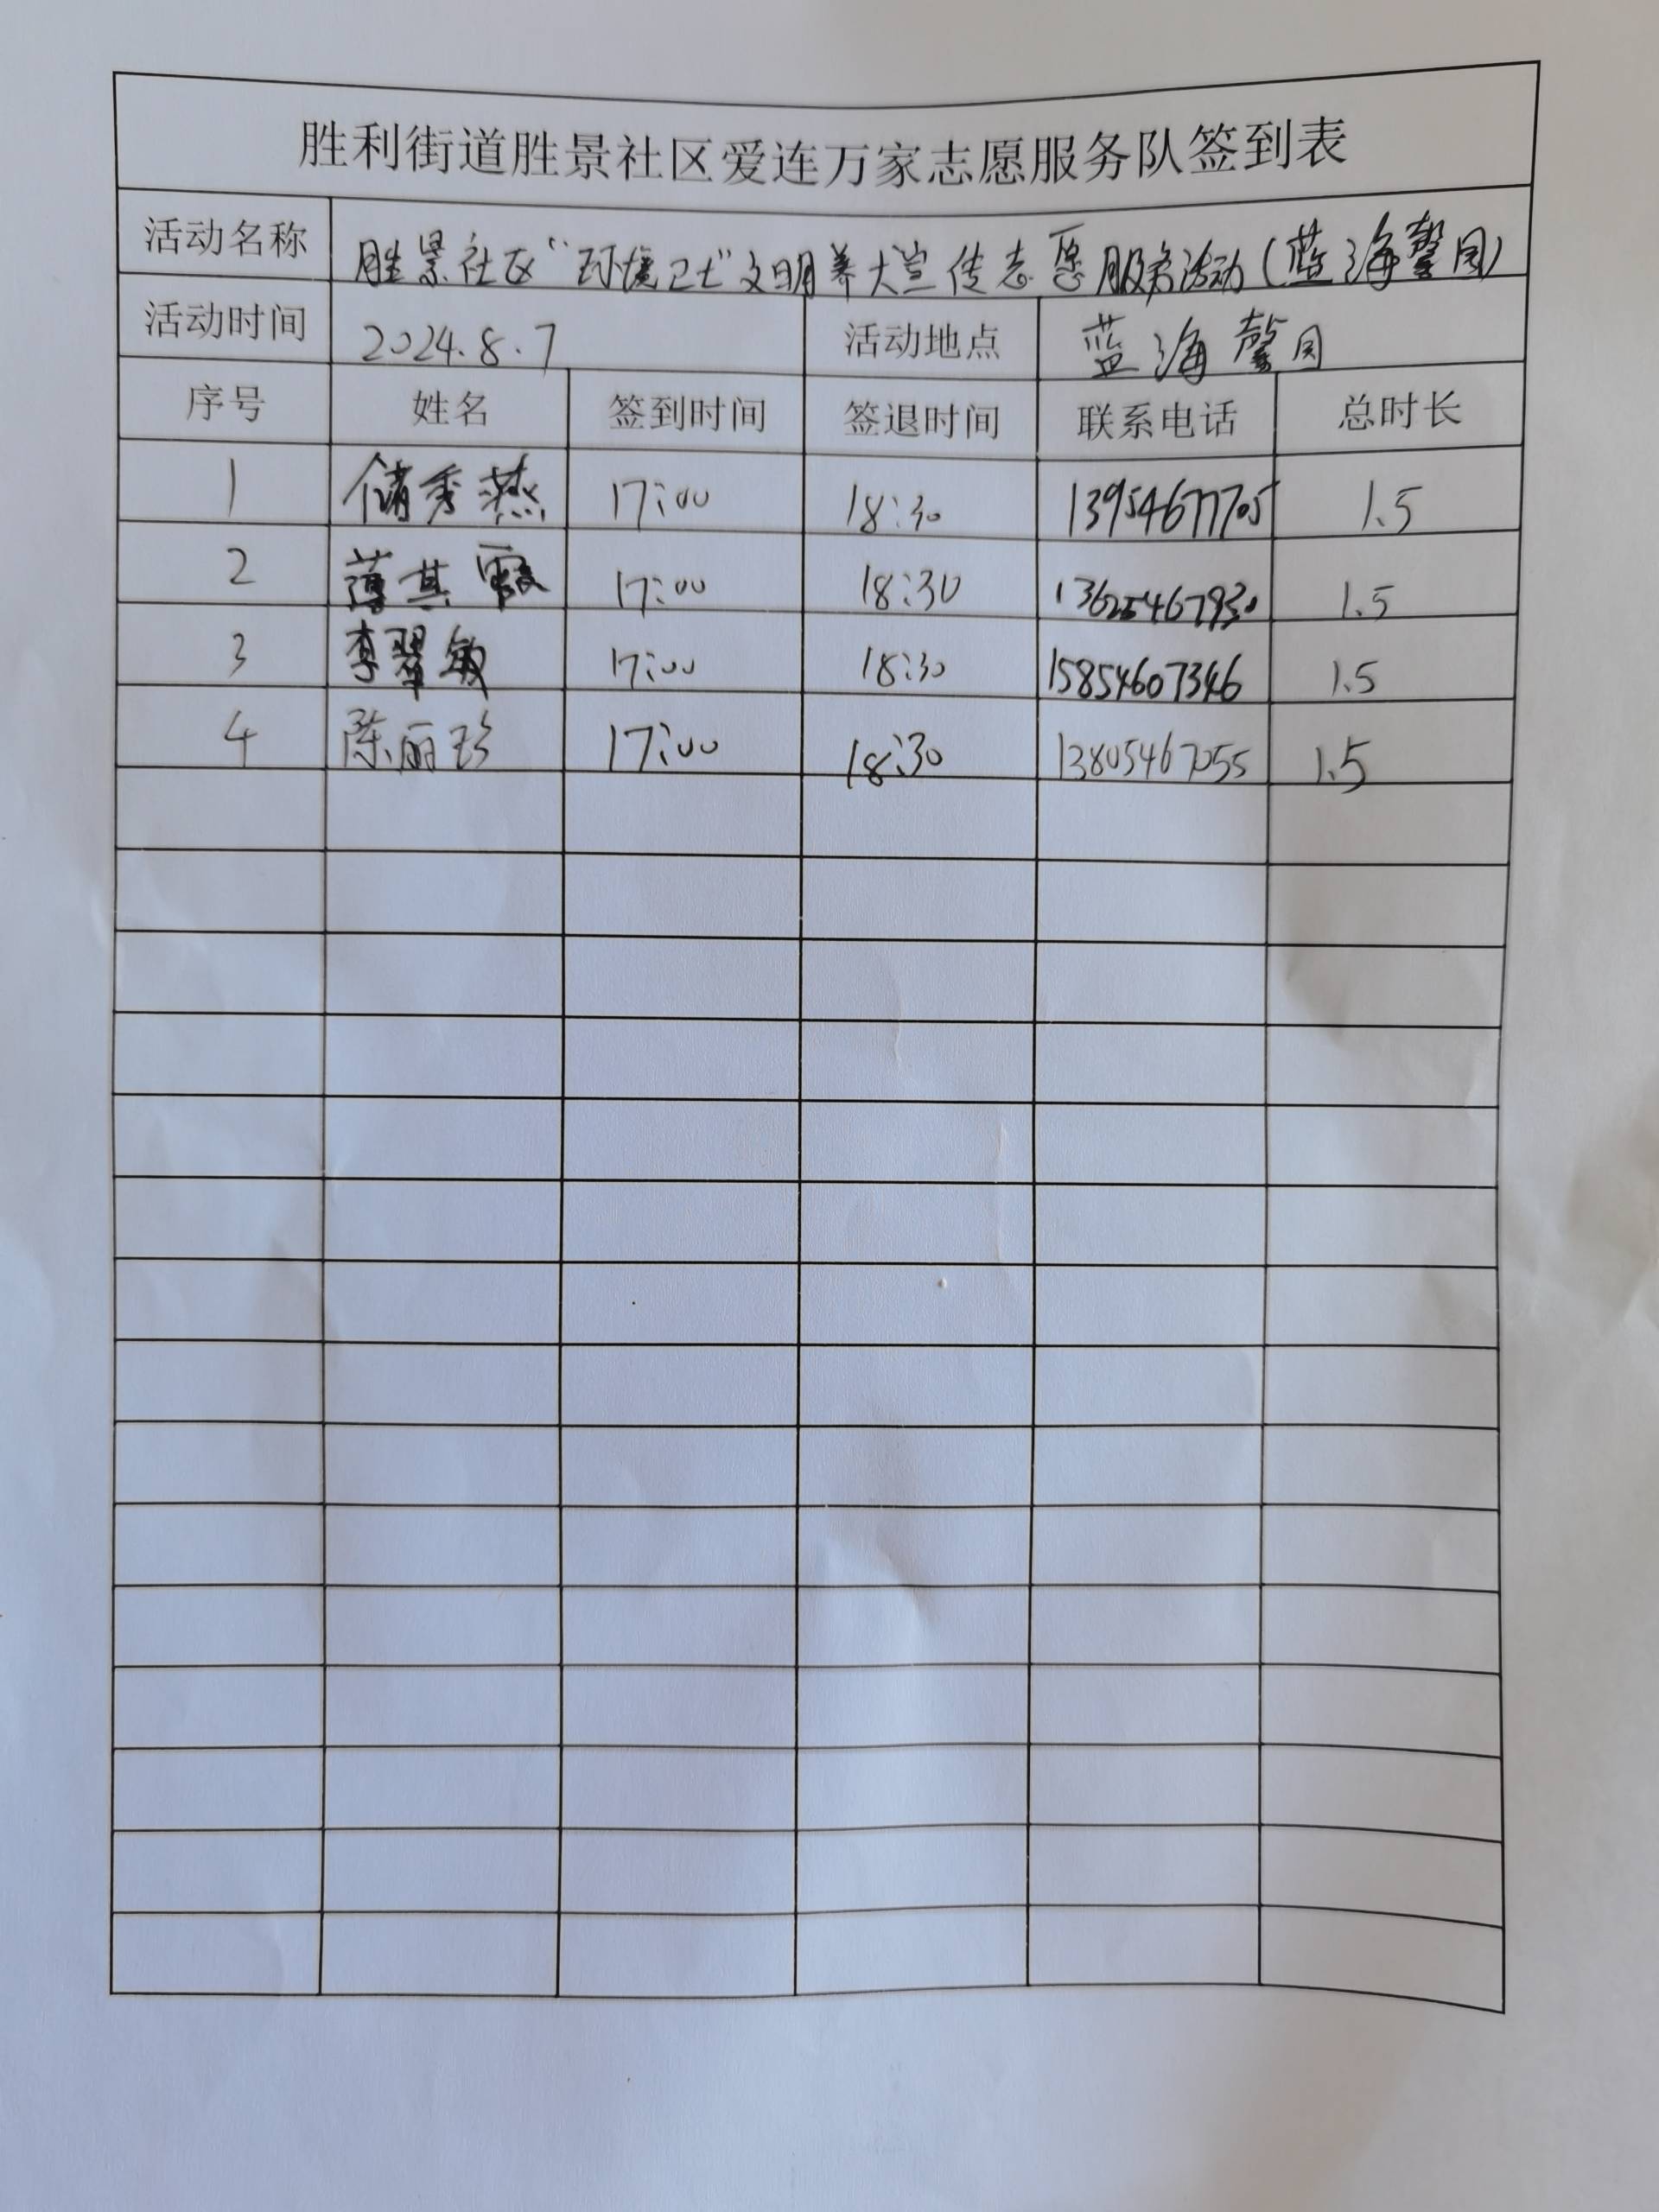 胜利街道胜景社区爱连万家志愿服务队签到表
活动名称 胜景社区“环境卫士”文明养犬宣传志愿服务活动(蓝海馨园)
活动时间 2024.8.7 活动地点 蓝海馨园
序号 姓名 签到时间 签退时间 联系电话 总时长
1 储秀燕 17:00 18:30 13954677705 1.5
2 薄其霞 17:00 18:30 13625467930 1.5
3 李翠敏 17:00 18:30 15854607346 1.5
4 陈丽珍 17:00 18:30 13805467055 1.5